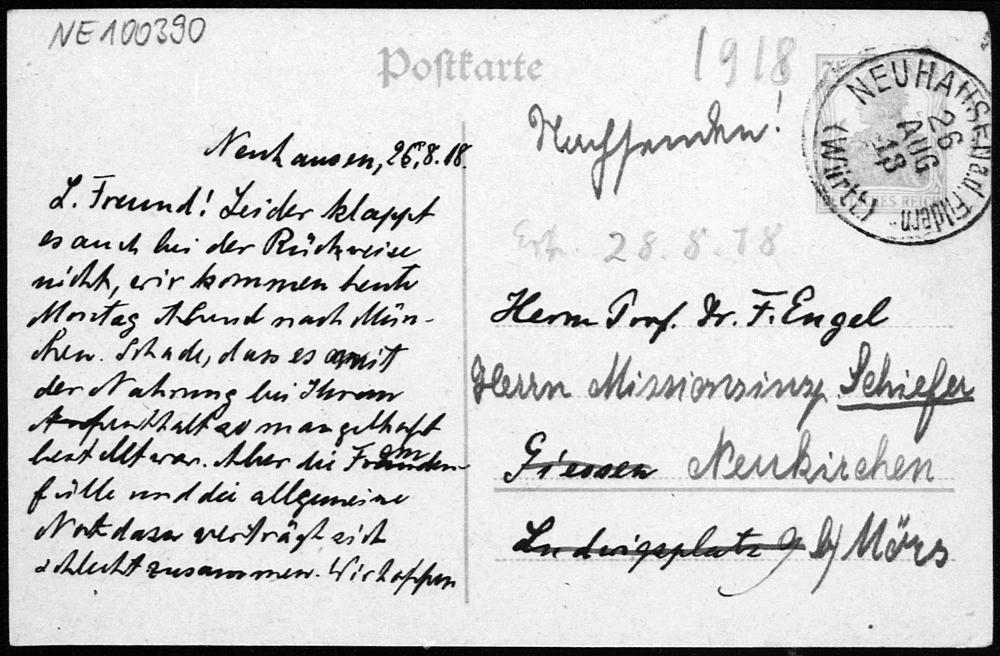 NE100390
Postkarte
1918
NEUHAUSEN a.d. Fildern
26
AUG
18
(Württ.)
Nachsenden!
Neuhausen, 26.8.18.
L. Freund! Leider klappt
es auch bei der Rückreise
nicht, wir kommen heute
Montag Abend nach Mün-
chen. Schade, dass es mit
der Nahrung bei Ihrem
Aufenthalt so mangelhaft
bestellt war. Aber die Fremden-
fülle und die allgemeine
Not dazu verträgt sich
schlecht zusammen. Wir hoffen
28.8.18
Herrn Prof. Dr. F. Engel
Herrn Missionsinsp. Schiefer
Giessen Neukirchen
Ludwigsplatz 9 b/ Mörs